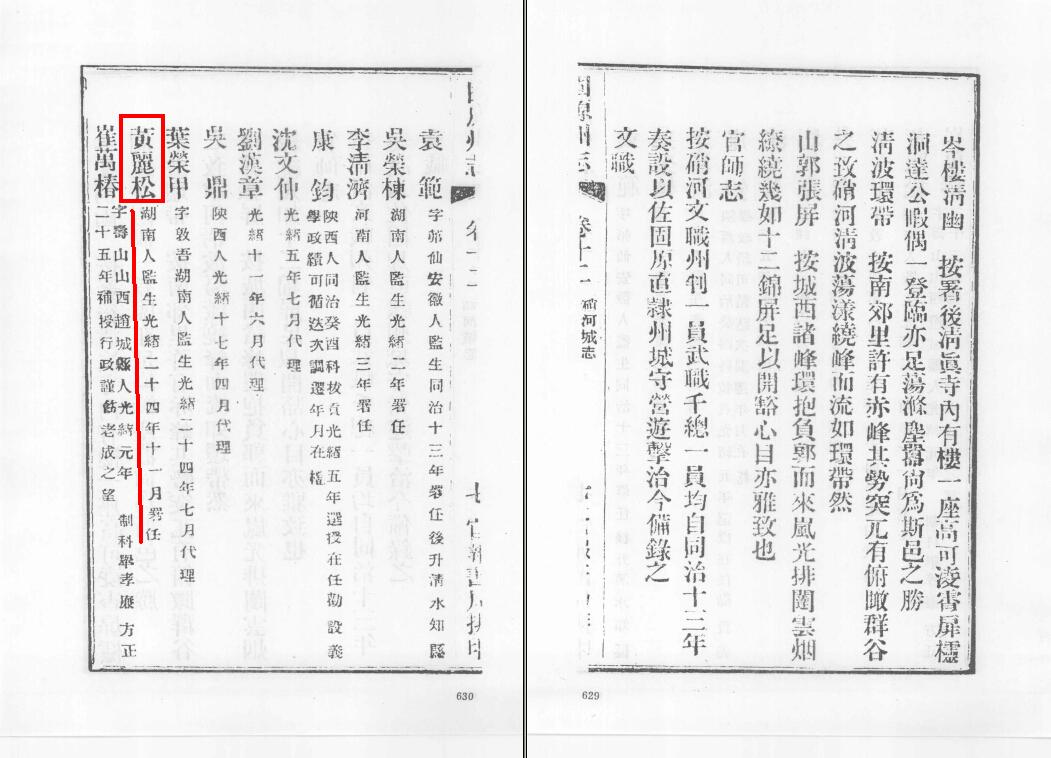 岑樓清幽　按署後清眞寺內有樓一座高可凌霄扉櫺
洞達公暇偶一登臨亦足蕩滌塵囂尚爲斯邑之勝
清波環帶　按南郊里許有赤峰其勢突兀有俯瞰群谷
之致硝河淸波蕩漾繞峰而流如環帶然
山郭張屏　按城西諸峰環抱負郭而來嵐光排闥雲烟
繚繞幾如十二錦屏足以開豁心目亦雅致也
官師志
按硝河文職州判一員武職千總一員均自同治十三年
奏設以佐固原直隸州城守營遊擊治今備錄之
文職
固原州志　卷十二　硝河城志
629
州志
七　官報書局排印
袁範　字茆仙安徽人監生同治十三年署任後升淸水知縣
吳榮棟　湖南人監生光緒二年署任
李淸濟　河南人監生光緒三年署任
康鈞　陝西人同治癸酉科拔貢光緒五年選授在任勸設義
學政績可循迭次調遷年月在檔
沈文仲　光緒五年七月代理
劉漢章　光緒十一年六月代理
吳鼎　陝西人光緒十七年四月代理
葉榮甲　字敦吾湖南人監生光緒二十四年七月代理
黃麗松　湖南人監生光緒二十四年十一月署任
崔萬椿　字壽山山西趙城縣人光緒元年　制科舉孝廉方正
二十五年補授行政謹飭老成之望
630